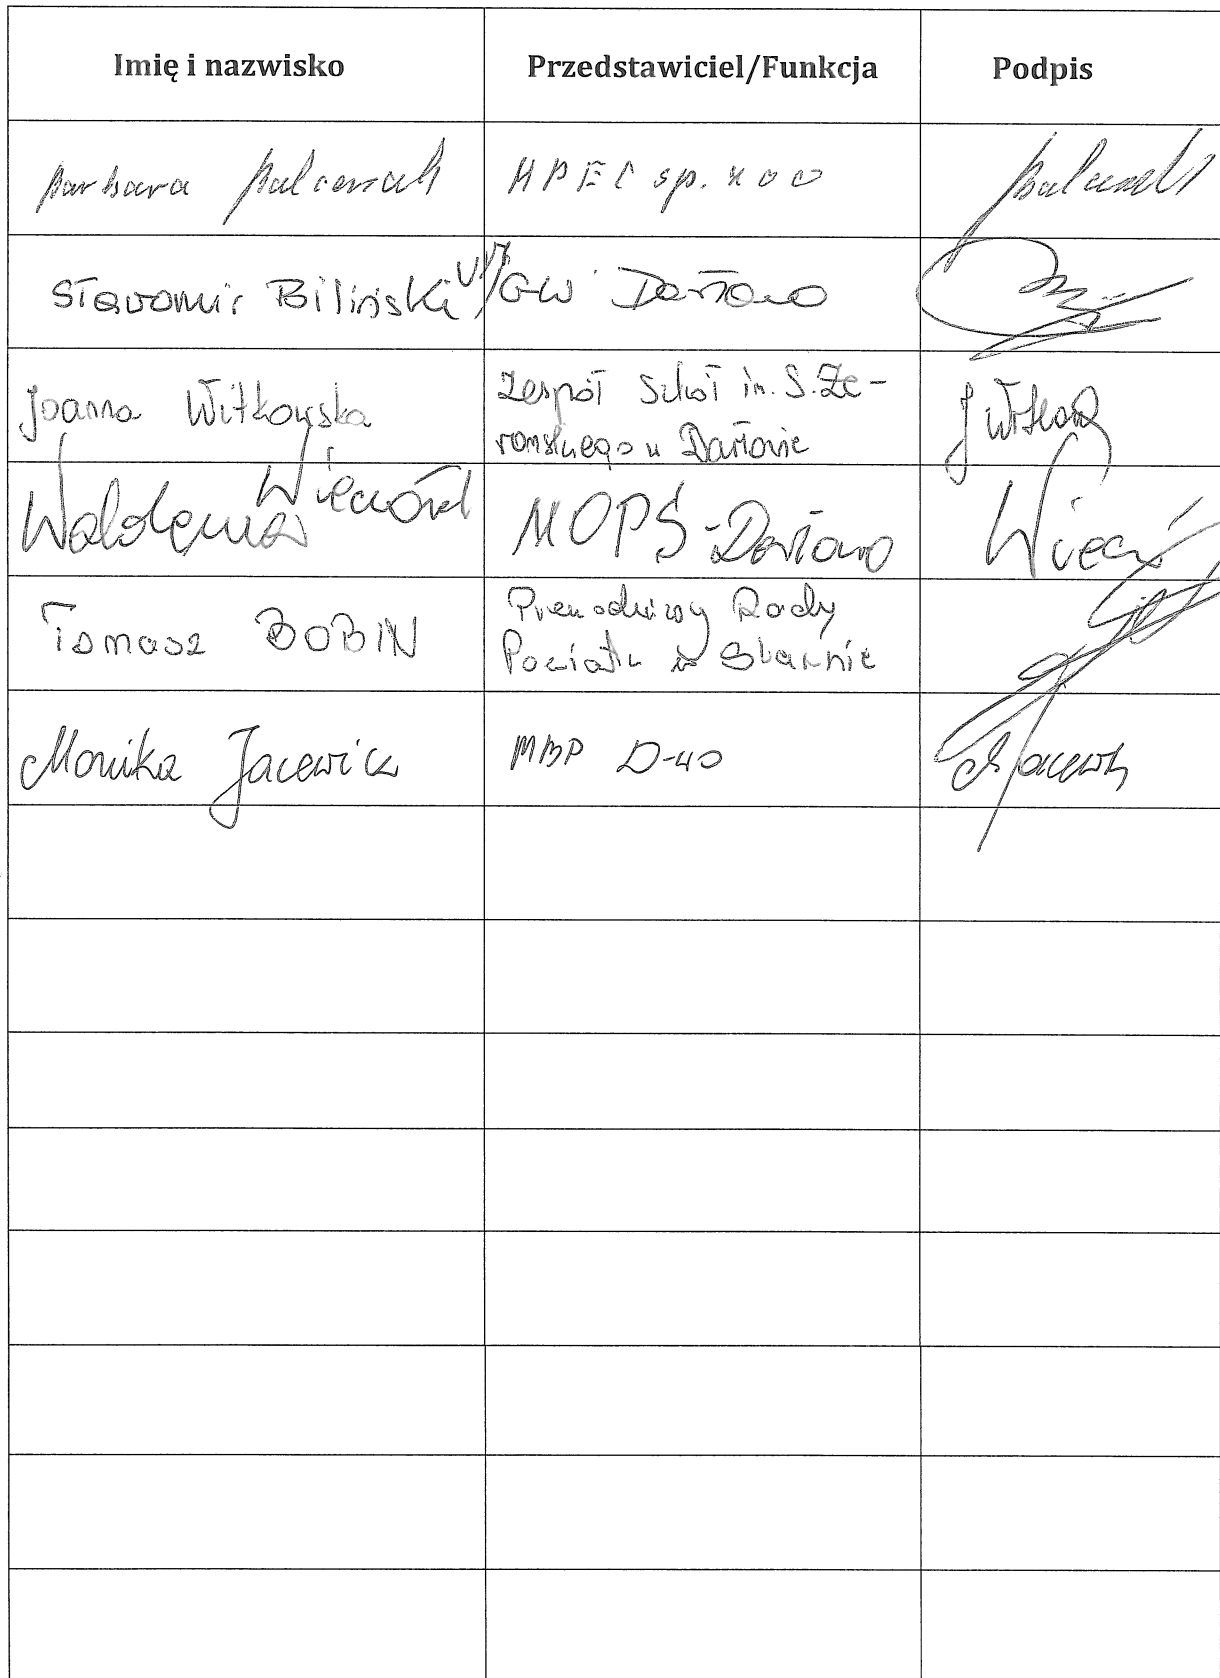 Imię i nazwisko Przedstawiciel/Funkcja Podpis
Barbara Balcerzak MPEC sp. z o o
Sławomir Biliński GW Darłowo
Joanna Witkowska Zespół Szkół im. S. Że-
romskiego w Darłowie J Witkows
Waldemar Wieczorek MOPS - Darłowo
Tomasz BOBIN Przewodniczący Rady
Powiatu w Sławnie
Monika Jacewicz MBP D-wo